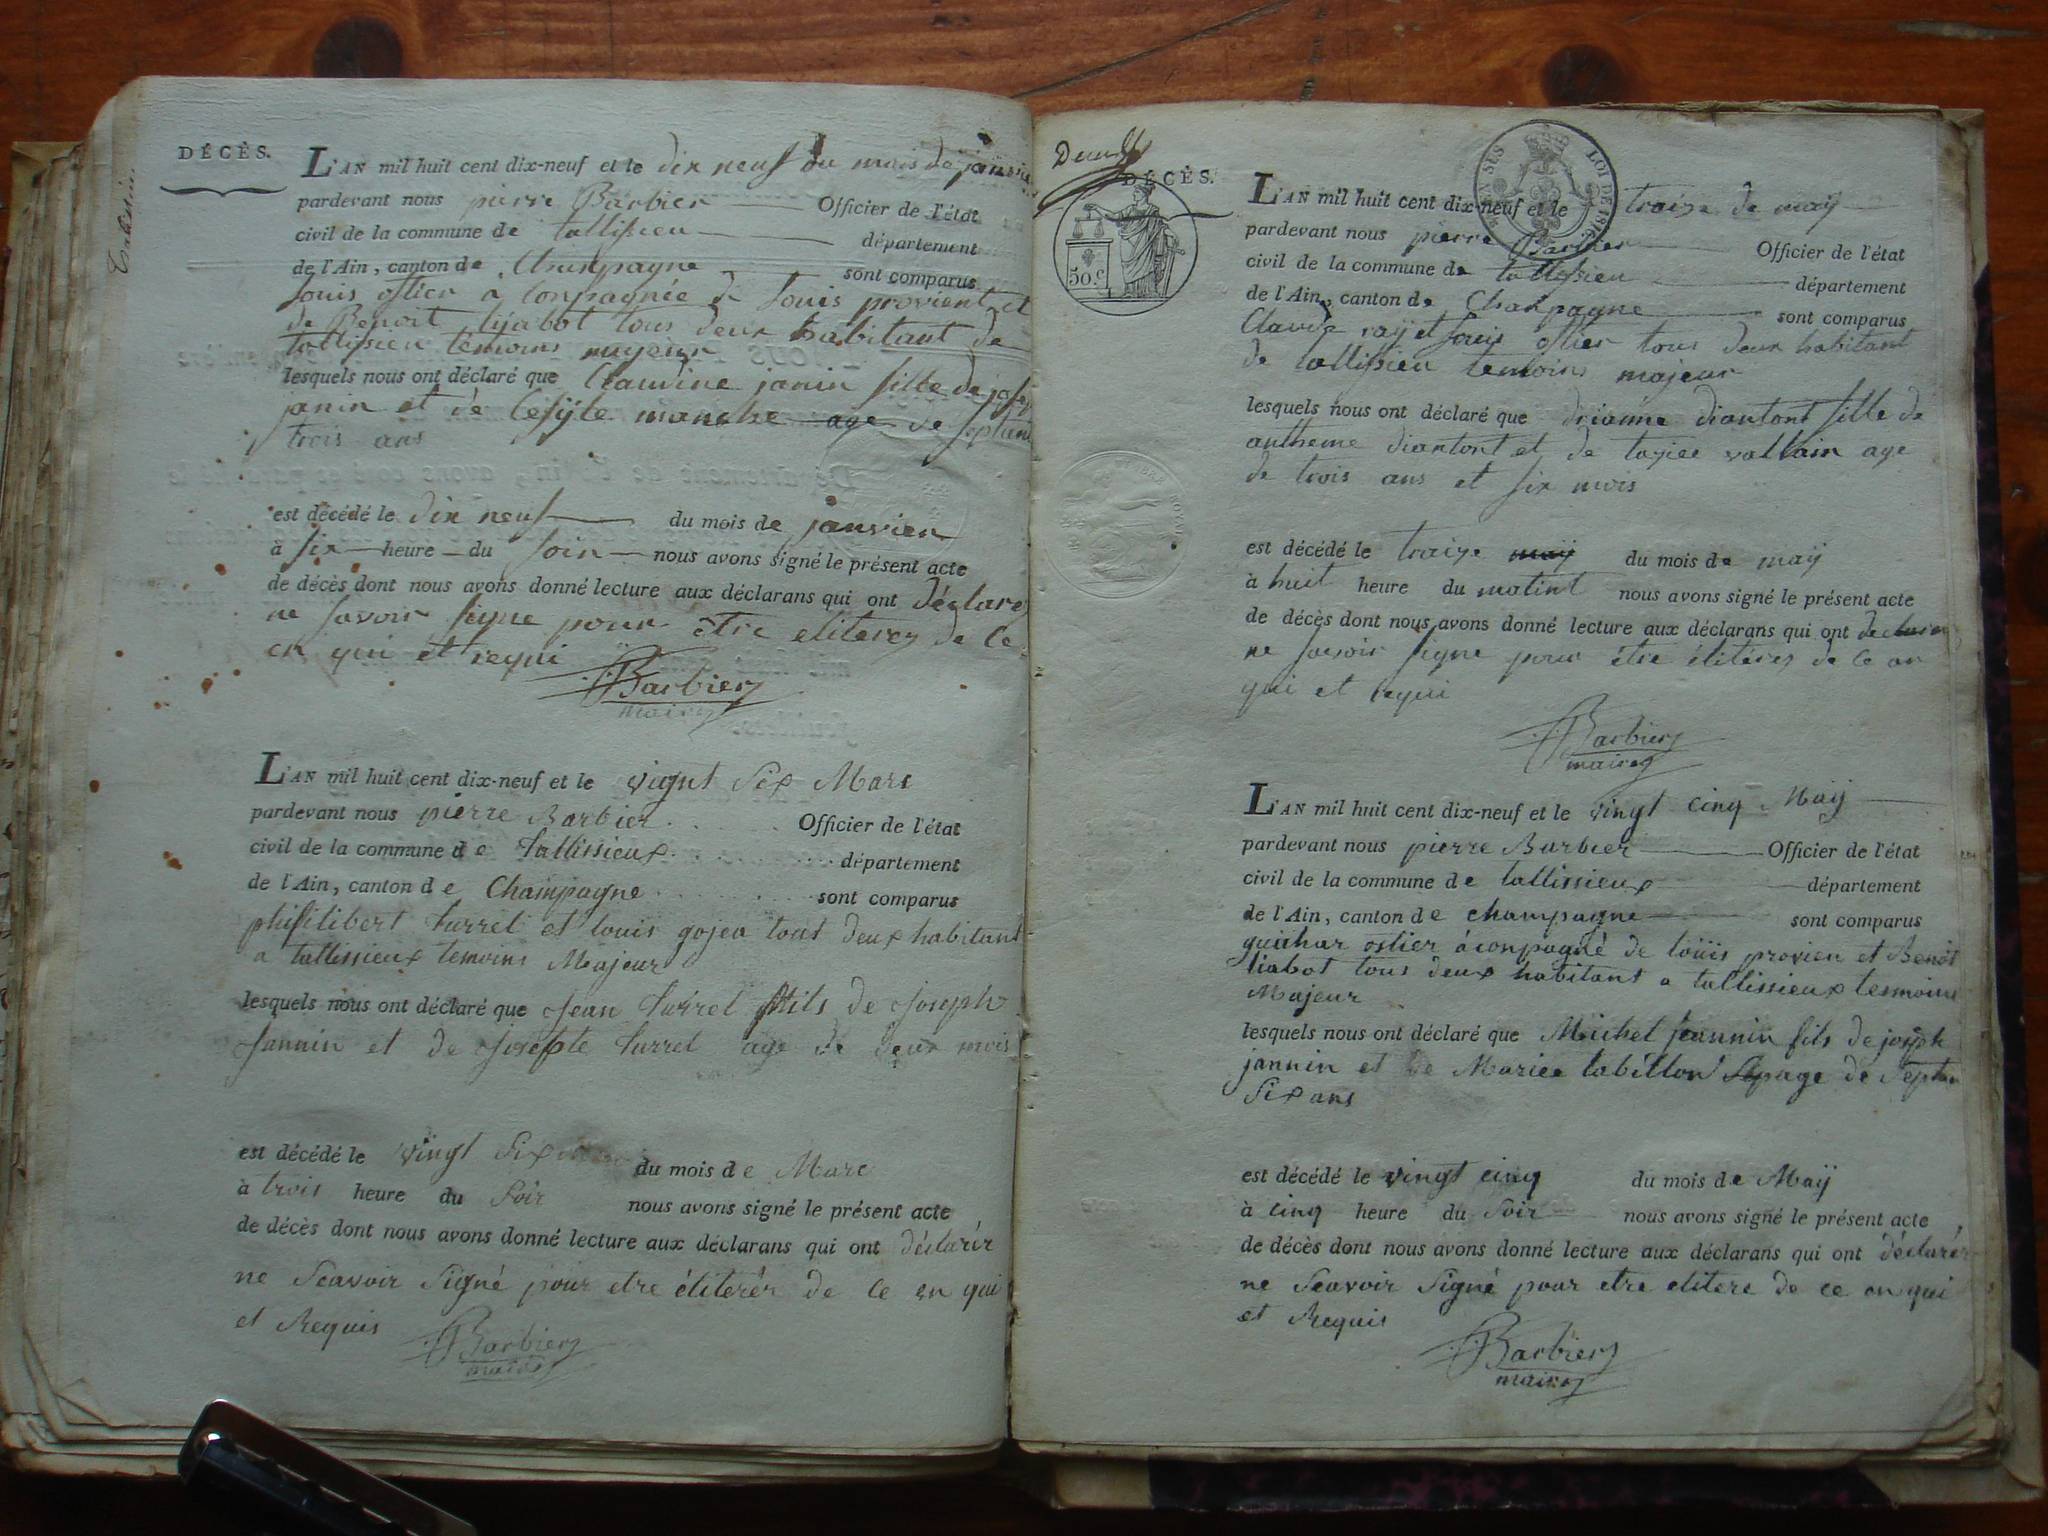 DÉCÈS.
L'AN mil huit cent dix-neuf et le dix neuf du mois de janvier
pardevant nous pierre Barbier Officier de l'état
civil de la commune de tallissieu département
de l'Ain, canton de Champagne sont comparus
Louis ostier a Conpagnée de Louis provient et
de Benoit liabot tous deux habitant de
tallissieu temoins majeur
lesquels nous ont déclaré que Claudine janin fille de josep
janin et de manche age de septant
trois ans
est décédé le dix neuf du mois de janvier
à six heure du soir nous avons signé le présent acte
de décès dont nous avons donné lecture aux déclarans qui ont déclare
ne savoir signe pour être eliterez de ce
en qui et requi
Barbier
maire
L'AN mil huit cent dix-neuf et le vignt Six Mars
pardevant nous pierre Barbier Officier de l'état
civil de la commune de tallissieux département
de l'Ain, canton de Champagne sont comparus
philibert turrel et louis gojea tout deux habitant
a tallissieux temoins Majeur
lesquels nous ont déclaré que Jean turrel fils de Joseph
Jannin et de Josephte turrel age de deux mois
est décédé le vingt Six du mois de Mars
à trois heure du Soir nous avons signé le présent acte
de décès dont nous avons donné lecture aux déclarans qui ont déclarér
ne Scavoir Signé pour etre élitérér de ce en qui
et Requis
Barbier
maire
DÉCÈS.
50 c.
LOI DE 1816.
TIMBRE ROYAL
L'AN mil huit cent dix-neuf et le traize de maÿ
pardevant nous pierre Barbier Officier de l'état
civil de la commune de tallissieu département
de l'Ain, canton de Chanpagne sont comparus
Claude raÿ et Louis ostier tous deux habitant
de tallissieu temoins majeur
lesquels nous ont déclaré que drianne diantont fille de
antheme diantont et de vallain age
de trois ans et six mois
est décédé le traize maÿ du mois de maÿ
à huit heure du matint nous avons signé le présent acte
de décès dont nous avons donné lecture aux déclarans qui ont
ne savoir signe pour être élitérez de ce an
qui et requi
Barbier
maire
L'AN mil huit cent dix-neuf et le vingt cinq Maÿ
pardevant nous pierre Barbier Officier de l'état
civil de la commune de tallissieux département
de l'Ain, canton de champagne sont comparus
ostier áconpagné de loüis provien et Benoit
liabot tous deux habitant a tallissieux tesmoins
Majeur
lesquels nous ont déclaré que Michel jeannin fils de joseph
jannin et de Mariee tabillon age de septan
Six ans
est décédé le vingt cinq du mois de Maÿ
à cinq heure du Soir nous avons signé le présent acte
de décès dont nous avons donné lecture aux déclarans qui ont déclarér
ne Scavoir Signé pour etre elitere de ce en qui
et Requis
Barbier
maire